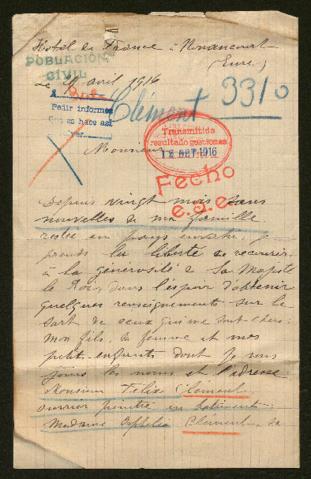 Hôtel de France à Nonancourt
(Eure)
POBLACION
CIVIL
le 4 avril 1916
Clément 3310
Pedir informes
Transmitida
resultado gestiones
12 SET. 1916
Fecho
Monsieur
Depuis vingt mois sans
nouvelles de ma famille
restée en pays envahi, je
prends la liberté de recourir
à la générosité de Sa Majesté
le Roi dans l'espoir d'obtenir
quelques renseignements sur le
sort de ceux qui me sont chers:
mon fils, sa femme et mes
petits-enfants dont je vous
les noms et l'adresse
Monsieur Félix Clément
ouvrier peintre en bâtiments
Madame Orphélia Clément